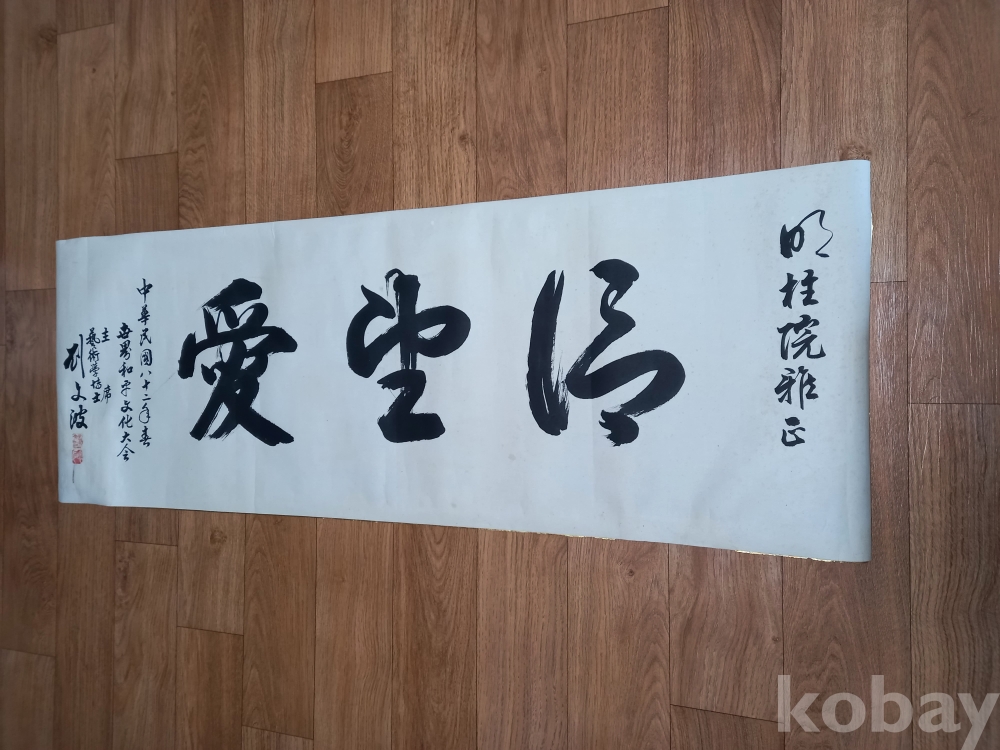 明桂院雅正
信望愛
中華民國八十二年春
世界和平文化大会
主席
藝術學博士
劉文波
kobay